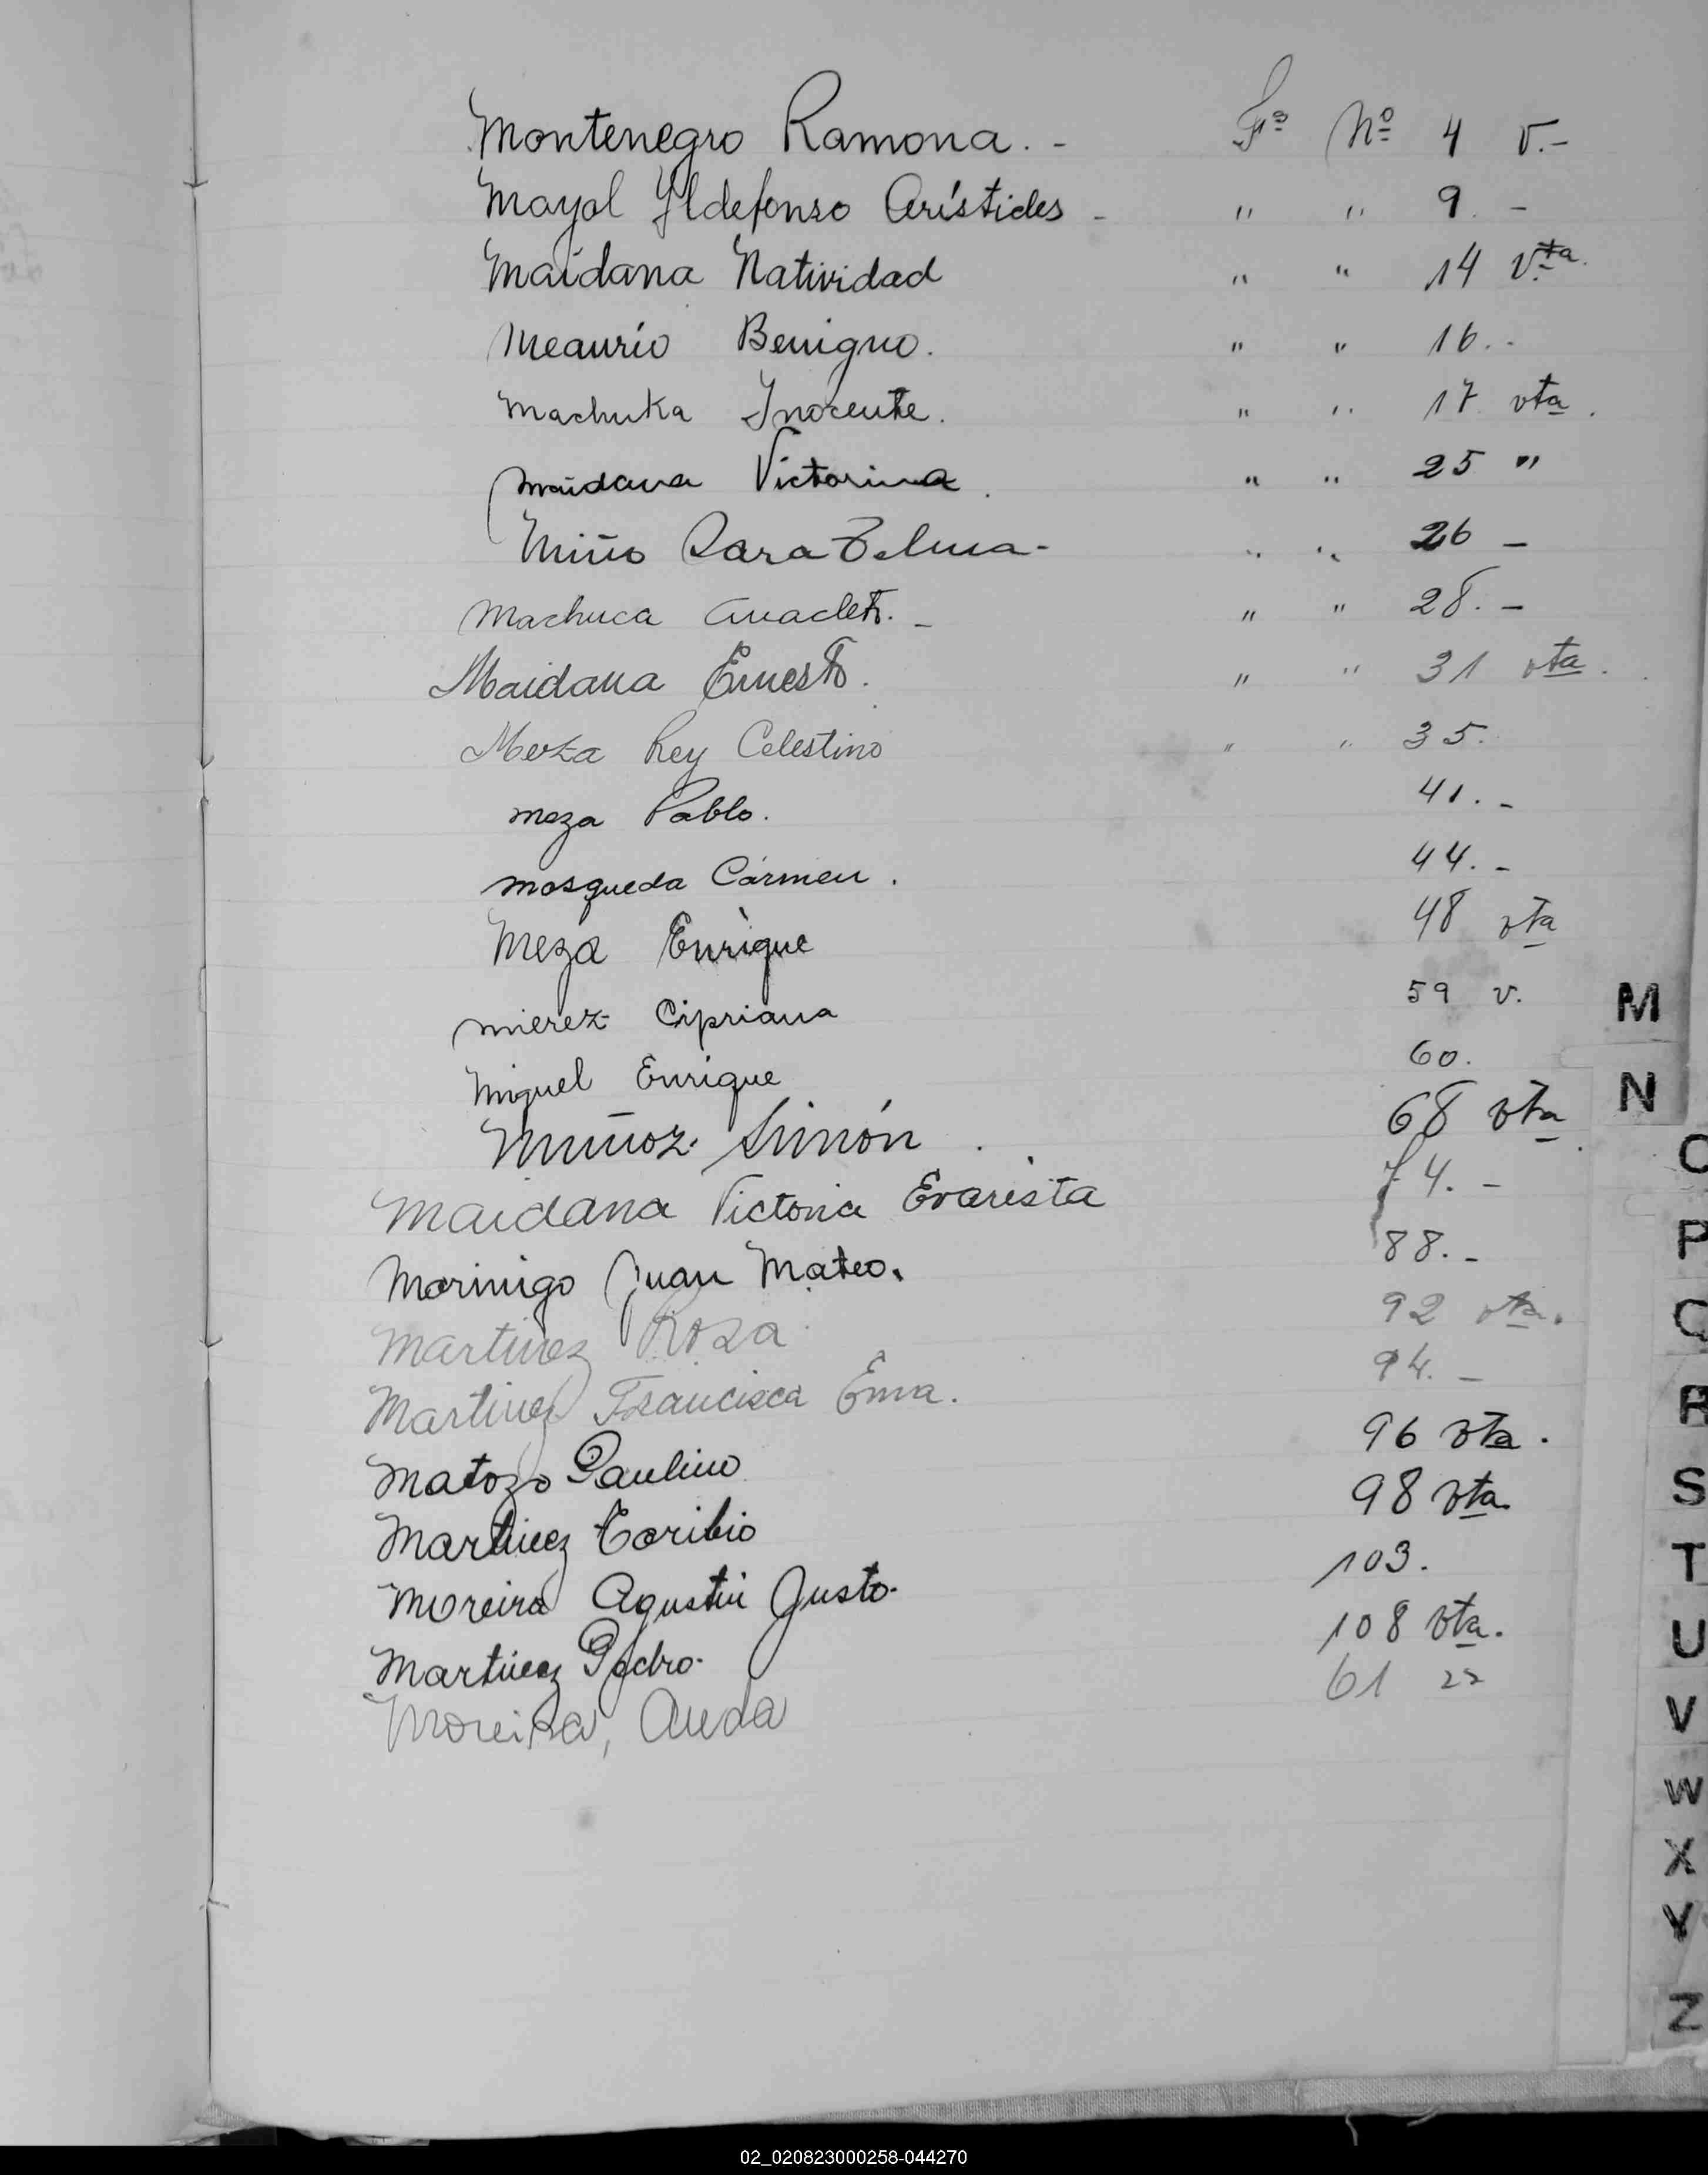 Montenegro Ramona. - Fº Nº 4 V.-
Mayol Yldefonso Arístides - " " 9. -
Maidana Natividad " " 14 Vta.
Meaurio Benigno. " " 16..
Machuka Inocente. " " 17 vta.
Maidana Victorina. " " 25 "
Miño Sara Zelma- " " 26 -
Machuca Anacleto. - " " 28. -
Maidana Ernesto. " " 31 vta.
Meza Rey Celestino " " 35.
Meza Pablo. 41. -
Mosqueda Cármen. 44. -
Meza Enrique 48 vta
Mierez Cipriana 59 v.
Miguel Enrique 60.
Muñoz Simón 68 vta
Maidana Victoria Evarista 74. -
Morinigo Juan Mateo. 88. -
Martinez Rosa 92 vta.
Martinez Francisca Ema. 94. -
Matozo Paulino 96 vta.
Martinez Toribio 98 vta.
Moreira Agustin Justo. 103.
Martinez Pedro. 108 vta.
Moreira, 61
M
N
O
P
Q
R
S
T
U
V
W
X
Y
Z
02_020823000258-044270